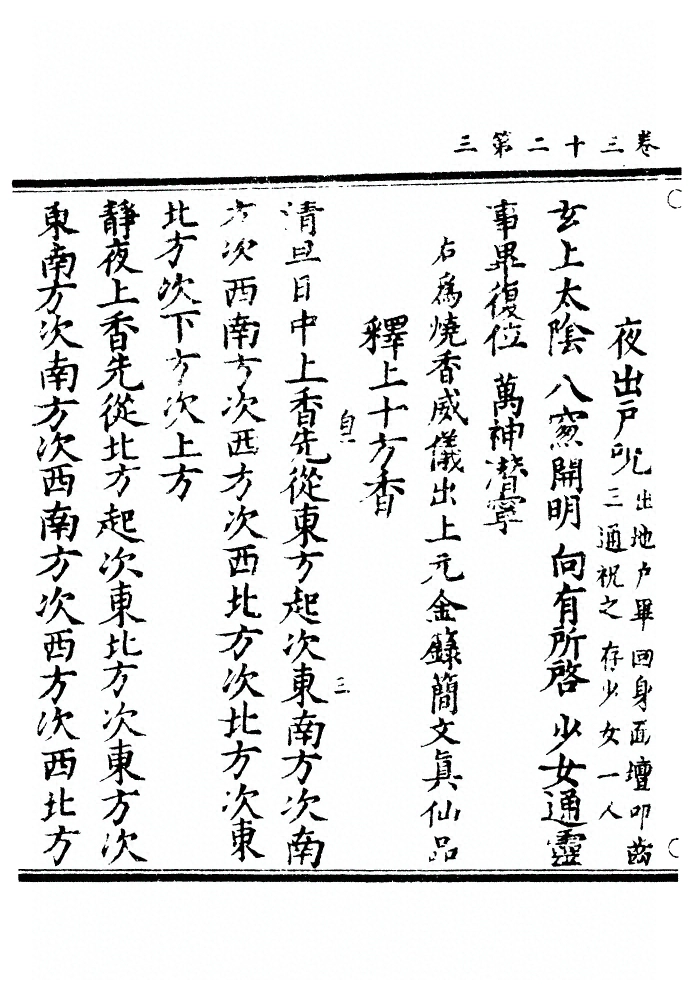 卷三十二第三
夜出戶呪 出地户畢回身面壇叩齒
三通祝之存少女一人
玄上太陰 八窓開明 向有所啓 少女通靈
事畢復位 萬神潜寧
右爲燒香威儀出上元金籙簡文眞仙品
釋上十方香
自一
三
清旦日中上香先從東方起次東南方次南
方次西南方次西方次西北方次北方次東
北方次下方次上方
靜夜上香先從北方起次東北方次東方次
東南方次南方次西南方次西方次西北方